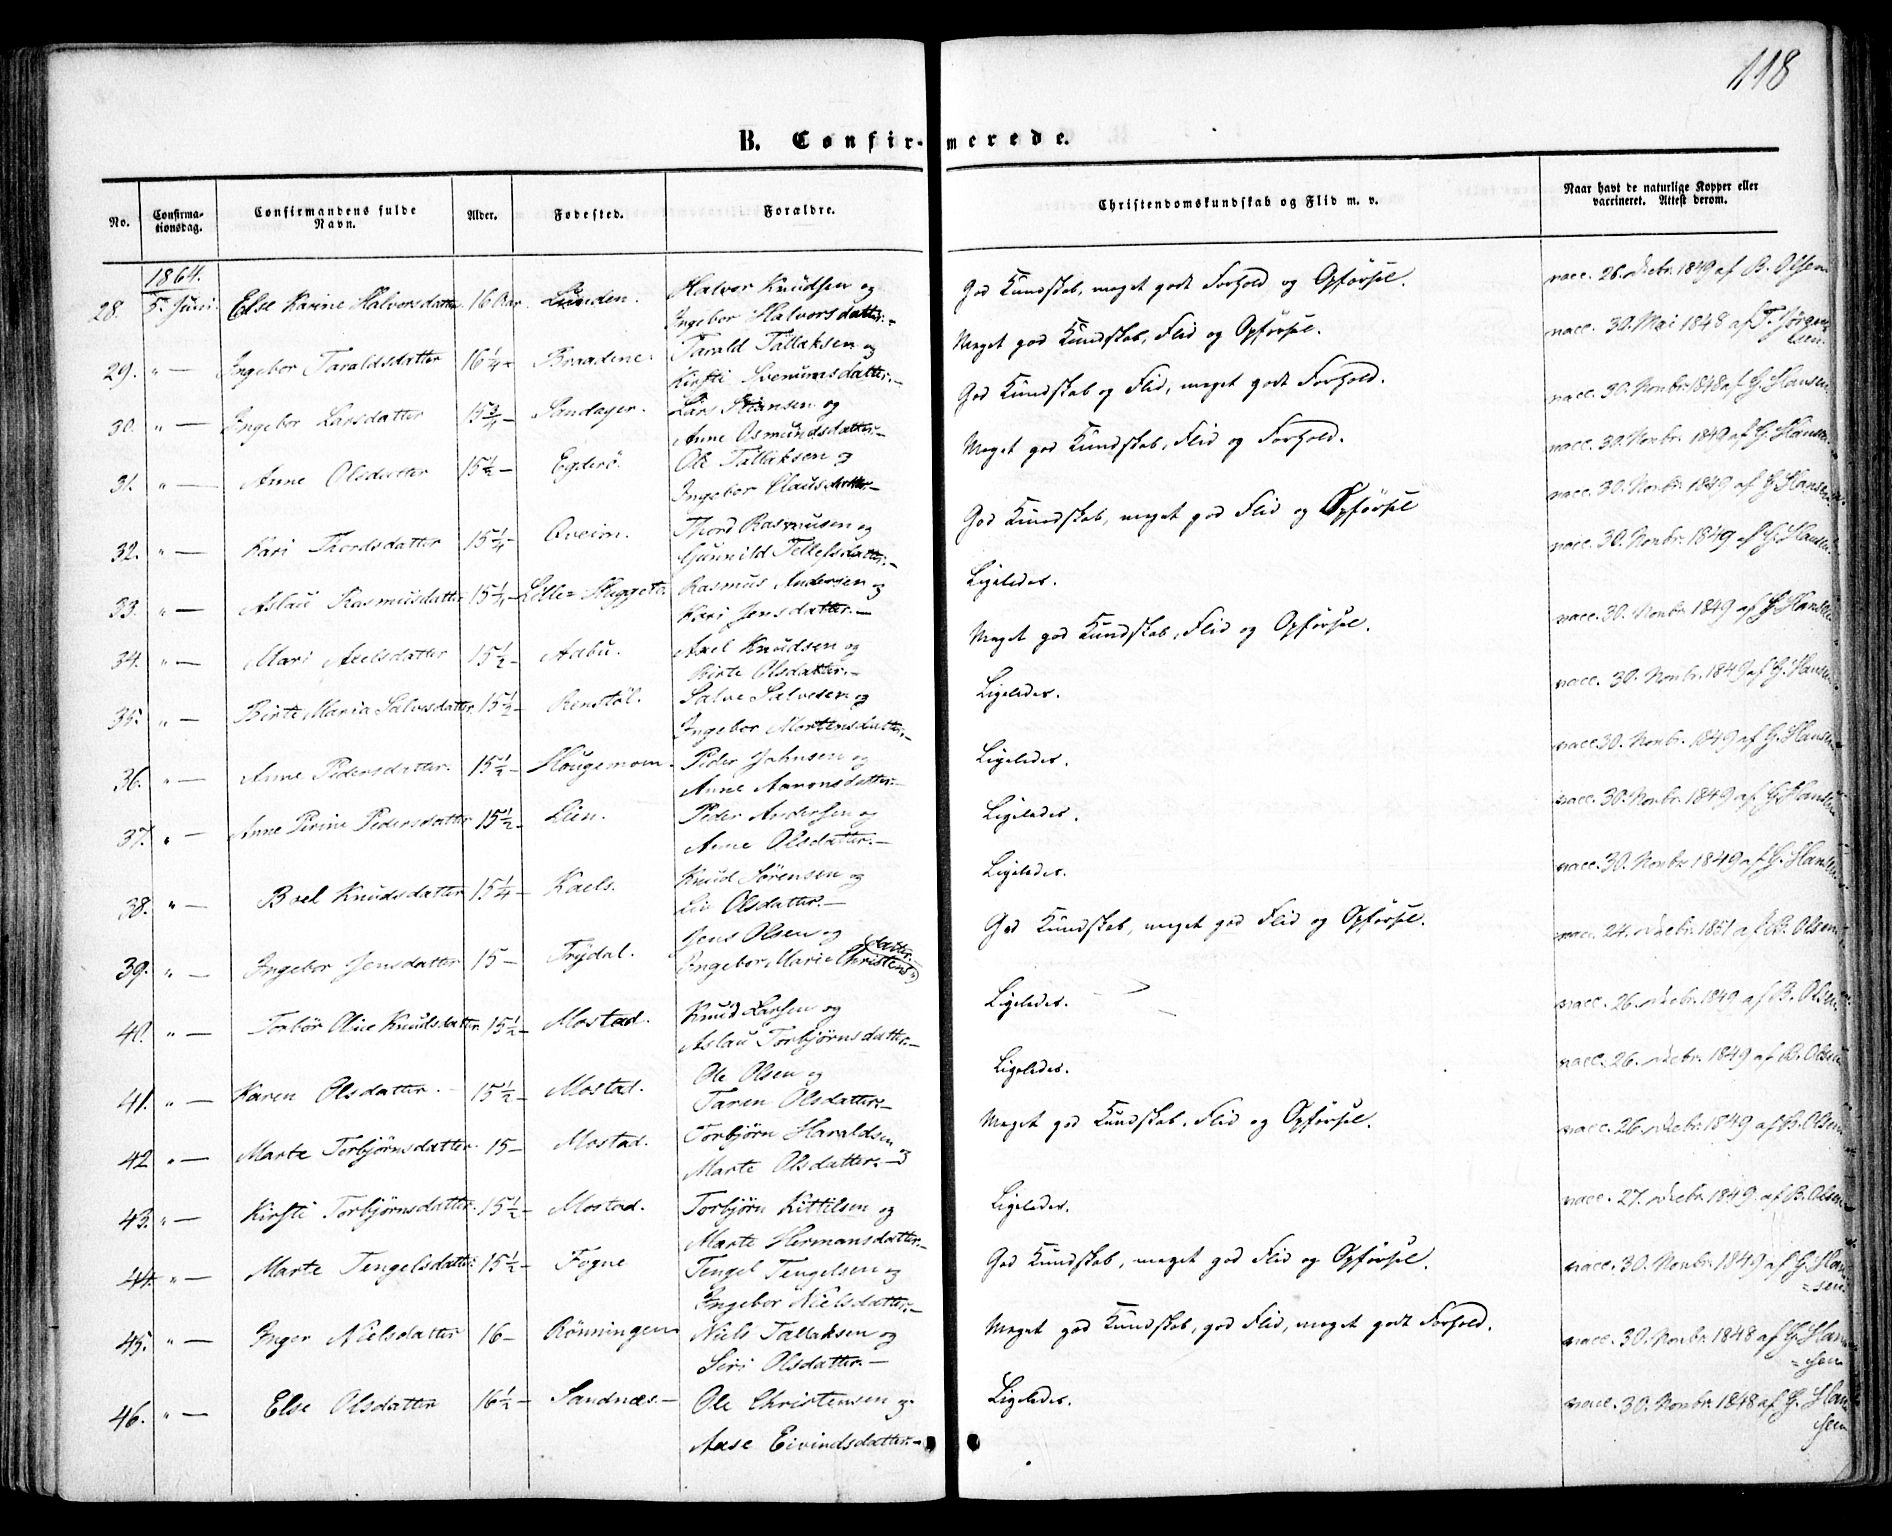 118
B. Confirmerede.
No. Confirmationsdag. Confirmandens fulde Navn. Alder. Fødested. Forældre. Christendomskundskab og Flid m. v. Naar havt de naturlige Kopper eller vaccineret. Attest derom.
1864.
28. 5. Juni Else Karine Halvorsdatter 16 Aar Lunden. Halvor Knudsen og God Kundskab, meget godt Forhold og Opførsel. vacc. 26. Decbr. 1849 af B. Olsen
Ingebor Halvorsdatter.
29. " — Ingebor Taraldsdatter 16 1/4 - Braadene. Tarald Tallaksen og Meget god Kundskab, Flid og Opførsel. vacc. 30. Mai 1848 af T. Jørgensen.
Kirsti Svenumsdatter. -
30. " — Ingebor Larsdatter 15 3/4 - Sandager. Lars Stiansen og God Kundskab og Flid, meget godt Forhold. vacc. 30. Novbr. 1848 af G. Hansen.
Anne Osmundsdatter. -
31. " — Anne Olsdatter 15 1/2 - Egderø. Ole Tallaksen og Meget god Kundskab, Flid og Forhold. vacc. 30. Novbr. 1849 af G. Hansen
Ingebor Clausdatter -
32. " — Kari Thordsdatter 15 1/4 - Qveim. Thord Rasmusen og God Kundskab, meget god Flid og Opførsel vacc. 30. Novbr. 1849 af G. Hansen
Gunnild Tellefsdatter. -
33. " — Aslau Rasmusdatter 15 1/4 - Lille= Skuggeta Rasmus Andersen og Ligeledes. vacc. 30. Novbr. 1849 af G. Hansen
Kari Jensdatter. -
34. " — Mari Axelsdatter 15 1/2 - Aabu. Axel Knudsen og Meget god Kundskab, Flid og Opførsel. vacc. 30. Novbr. 1849 af G. Hansen
Birte Olsdatter. -
35. " — Birte Maria Salvesdatter 15 1/2 - Renstøl. Salve Salvesen og Ligeledes. vacc. 30. Novbr. 1849 af G. Hansen
Ingebor Mortensdatter. -
36. " — Anne Pedersdatter. 15 1/2 - Hougemoen. Peder Johnsen og Ligeledes. vacc 30. Novbr. 1849 af G. Hansen
Anne Aaronsdatter. -
37. " — Anne Perine Pedersdatter 15 1/2 - Lien. Peder Andersen og Ligeledes. vacc. 30. Novbr. 1849 af G. Hansen
Anne Olsdatter. -
38. " — Boel Knudsdatter 15 1/4 - Kaels. Knud Sørensen og Ligeledes. vacc. 30. Novbr 1849 af G. Hansen
Liv Olsdatter. -
39. " — Ingebor Jensdatter 15 - Trydal. Jens Olsen og God Kundskab, meget god Flid og Opførsel. vacc. 24. Decbr. 1851 af B. Olsen
Ingebor Marie Christensdatter.
40. " — Torbør Oline Knudsdatter 15 1/2 - Mostad. Knud Larsen og Ligeledes. vacc. 26. Decbr. 1849 af B. Olsen
Aslau Torbjørnsdatter. -
41. " — Karen Olsdatter. 15 1/2 - Mostad. Ole Olsen og Ligeledes. vacc. 26. Decbr. 1849 af B. Olsen
Taren Olsdatter. -
42 " — Marte Torbjørnsdatter. 15 - Mostad. Torbjørn Haraldsen og Meget god Kundskab, Flid og Opførsel. vacc. 26. Decbr. 1849 af B. Olsen
Marte Olsdatter. -
43. " — Kirsti Torbjørnsdatter 15 1/2 - Mostad. Torbjørn Kittilsen og Ligeledes. vacc. 27. Decbr. 1849. af B. Olsen
Marte Hermansdatter. -
44. " — Marte Tengelsdatter 15 1/2 - Fogne Tengel Tengelsen og God Kundskab, meget god Flid og Opførsel. vacc. 30. Novbr. 1849 af G. Han=sen
Ingebor Nielsdatter. -
45. " — Inger Nielsdatter 16 - Rønningen Niels Tallaksen og Meget god Kundskab, god Flid, meget godt Forhold. vacc. 30. Novbr. 1848 af G. Han=sen
Siri Olsdatter. -
46. " — Else Olsdatter 16 1/2 - Sandnæs. - Ole Christensen og Ligeledes. vacc. 30. Novbr. 1848 af G. Hansen
Aase Eivindsdatter. -